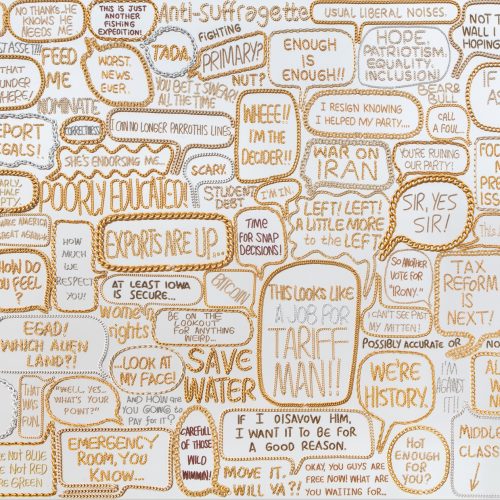 NO THANKS...HE
KNOWS HE
NEEDS ME
THIS IS JUST
ANOTHER
FISHING
EXPEDITION!
Anti-Suffragette
USUAL LIBERAL NOISES.
FEED
ME
WORST.
NEWS.
EVER.
TADA
FIGHTING
PRIMARY?
NUT?
YOU BET I SWEAR!
ALL THE TIME
ENOUGH
IS
ENOUGH!!
HOPE.
PATRIOTISM.
EQUALITY.
INCLUSION!
WALL I
HOPING
BEAR&
BULL
NOMINATE
CORRECTNESS
I CAN NO LONGER PARROT HIS LINES
WHEEE!!
I'M THE
DECIDER!!
I RESIGN KNOWING
I HELPED MY PARTY...
CALL
A FOUL...
SHE'S ENDORSING ME...
SCARY
WAR ON
IRAN
YOU'RE RUINING
OUR PARTY!
POORLY EDUCATED!
STUDENT
DEBT
I'M IN
LEFT! LEFT!
A LITTLE MORE
to the LEFT!
SIR, YES
SIR!
MAKE AMERICA
GREAT AGAIN!
HOW
MUCH
WE
RESPECT
YOU!
EXPORTS ARE UP...
TIME
FOR SNAP
DECISIONS!
HOW DO
YOU FEEL
?
AT LEAST IOWA
IS SECURE...
BITCOIN!
THIS LOOKS LIKE
A JOB FOR
TARIFF
MAN!!
SO ANOTHER
VOTE FOR
"IRONY."
TAX
REFORM
IS
NEXT!
women's
rights
BE ON THE
LOOKOUT
FOR ANYTHING
WEIRD...
I CAN'T SEE PAST
MY MITTEN!
EGAD!
WHICH ALIEN
LAND?!
...LOOK AT
MY FACE!
SAVE
WATER
POSSIBLY ACCURATE OR
WE'RE
HISTORY.
I'M
AGAINST
IT!
THAT
WAS
FUN.
"WELL, YES...
WHAT'S YOUR
POINT?"
AND HOW are
YOU GOING to
PAY for IT?
IF I DISAVOW HIM,
I WANT IT TO BE FOR
A GOOD REASON.
NOT BLUE
NOT RED
GREEN
EMERGENCY
ROOM, YOU
KNOW...
CAREFUL
OF THOSE
WILD
WIMMIN!
MOVE IT.
WILL YA?!
OKAY, YOU GUYS ARE
FREE NOW! WHAT ARE
YOU WAITING FOR...
HOT
ENOUGH
FOR
YOU?
MIDDLE
CLASS